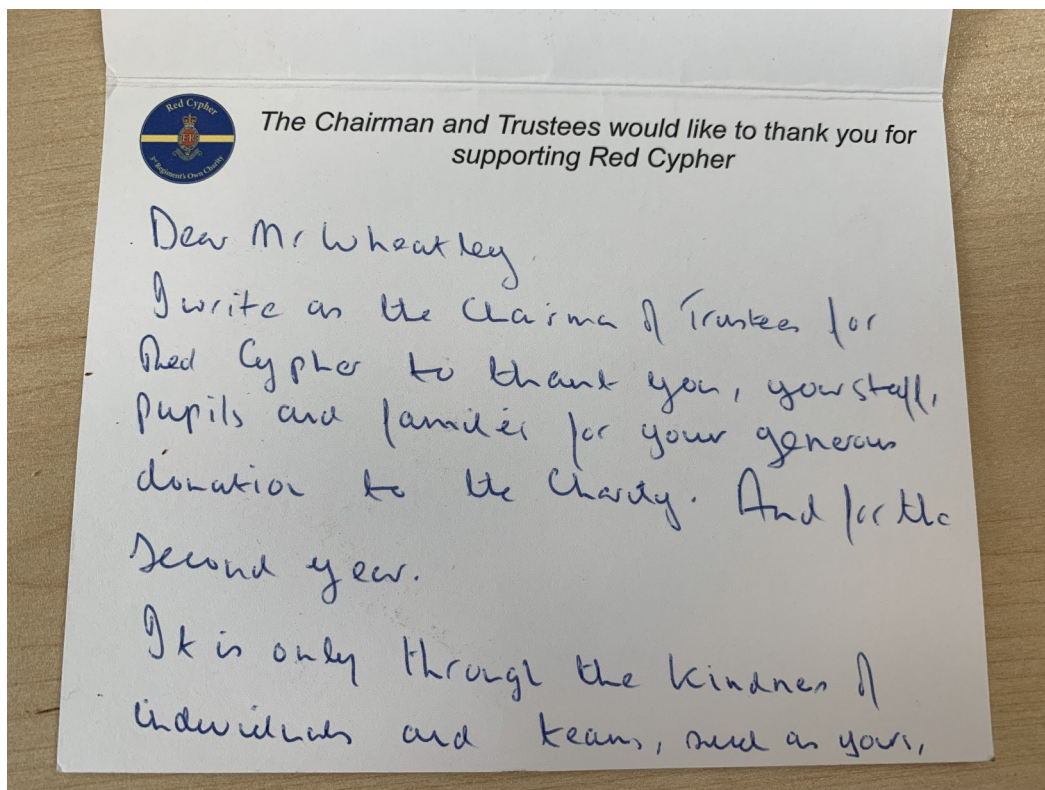 Red Cypher
ER
3rd Regiment's Own Charity
The Chairman and Trustees would like to thank you for
supporting Red Cypher
Dear Mr Wheatley
I write as the Chairman of Trustees for
Red Cypher to thank you, your staff,
pupils and families for your generous
donation to the Charity. And for the
second year.
It is only through the kindness of
individuals and teams, such as yours,